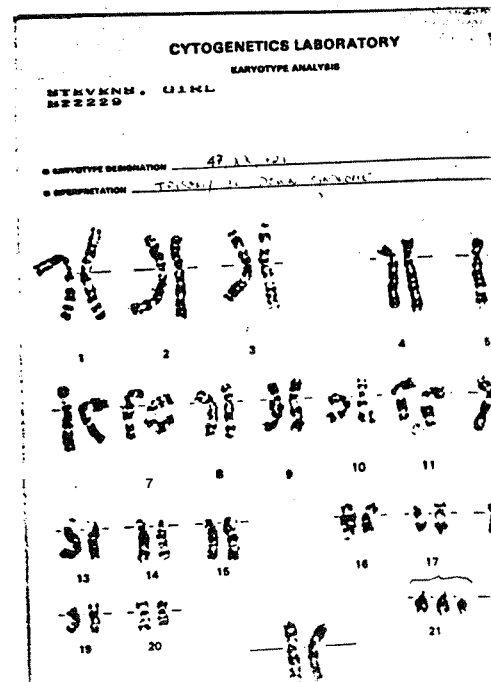 CYTOGENETICS LABORATORY
KARYOTYPE ANALYSIS
STEVENS, GIRL
822229
KARYOTYPE DESIGNATION 47 XX +21
INTERPRETATION TRISOMY 21 DOWN SYNDROME
1 2 3 4 5
7 8 9 10 11
13 14 15 16 17
19 20 21